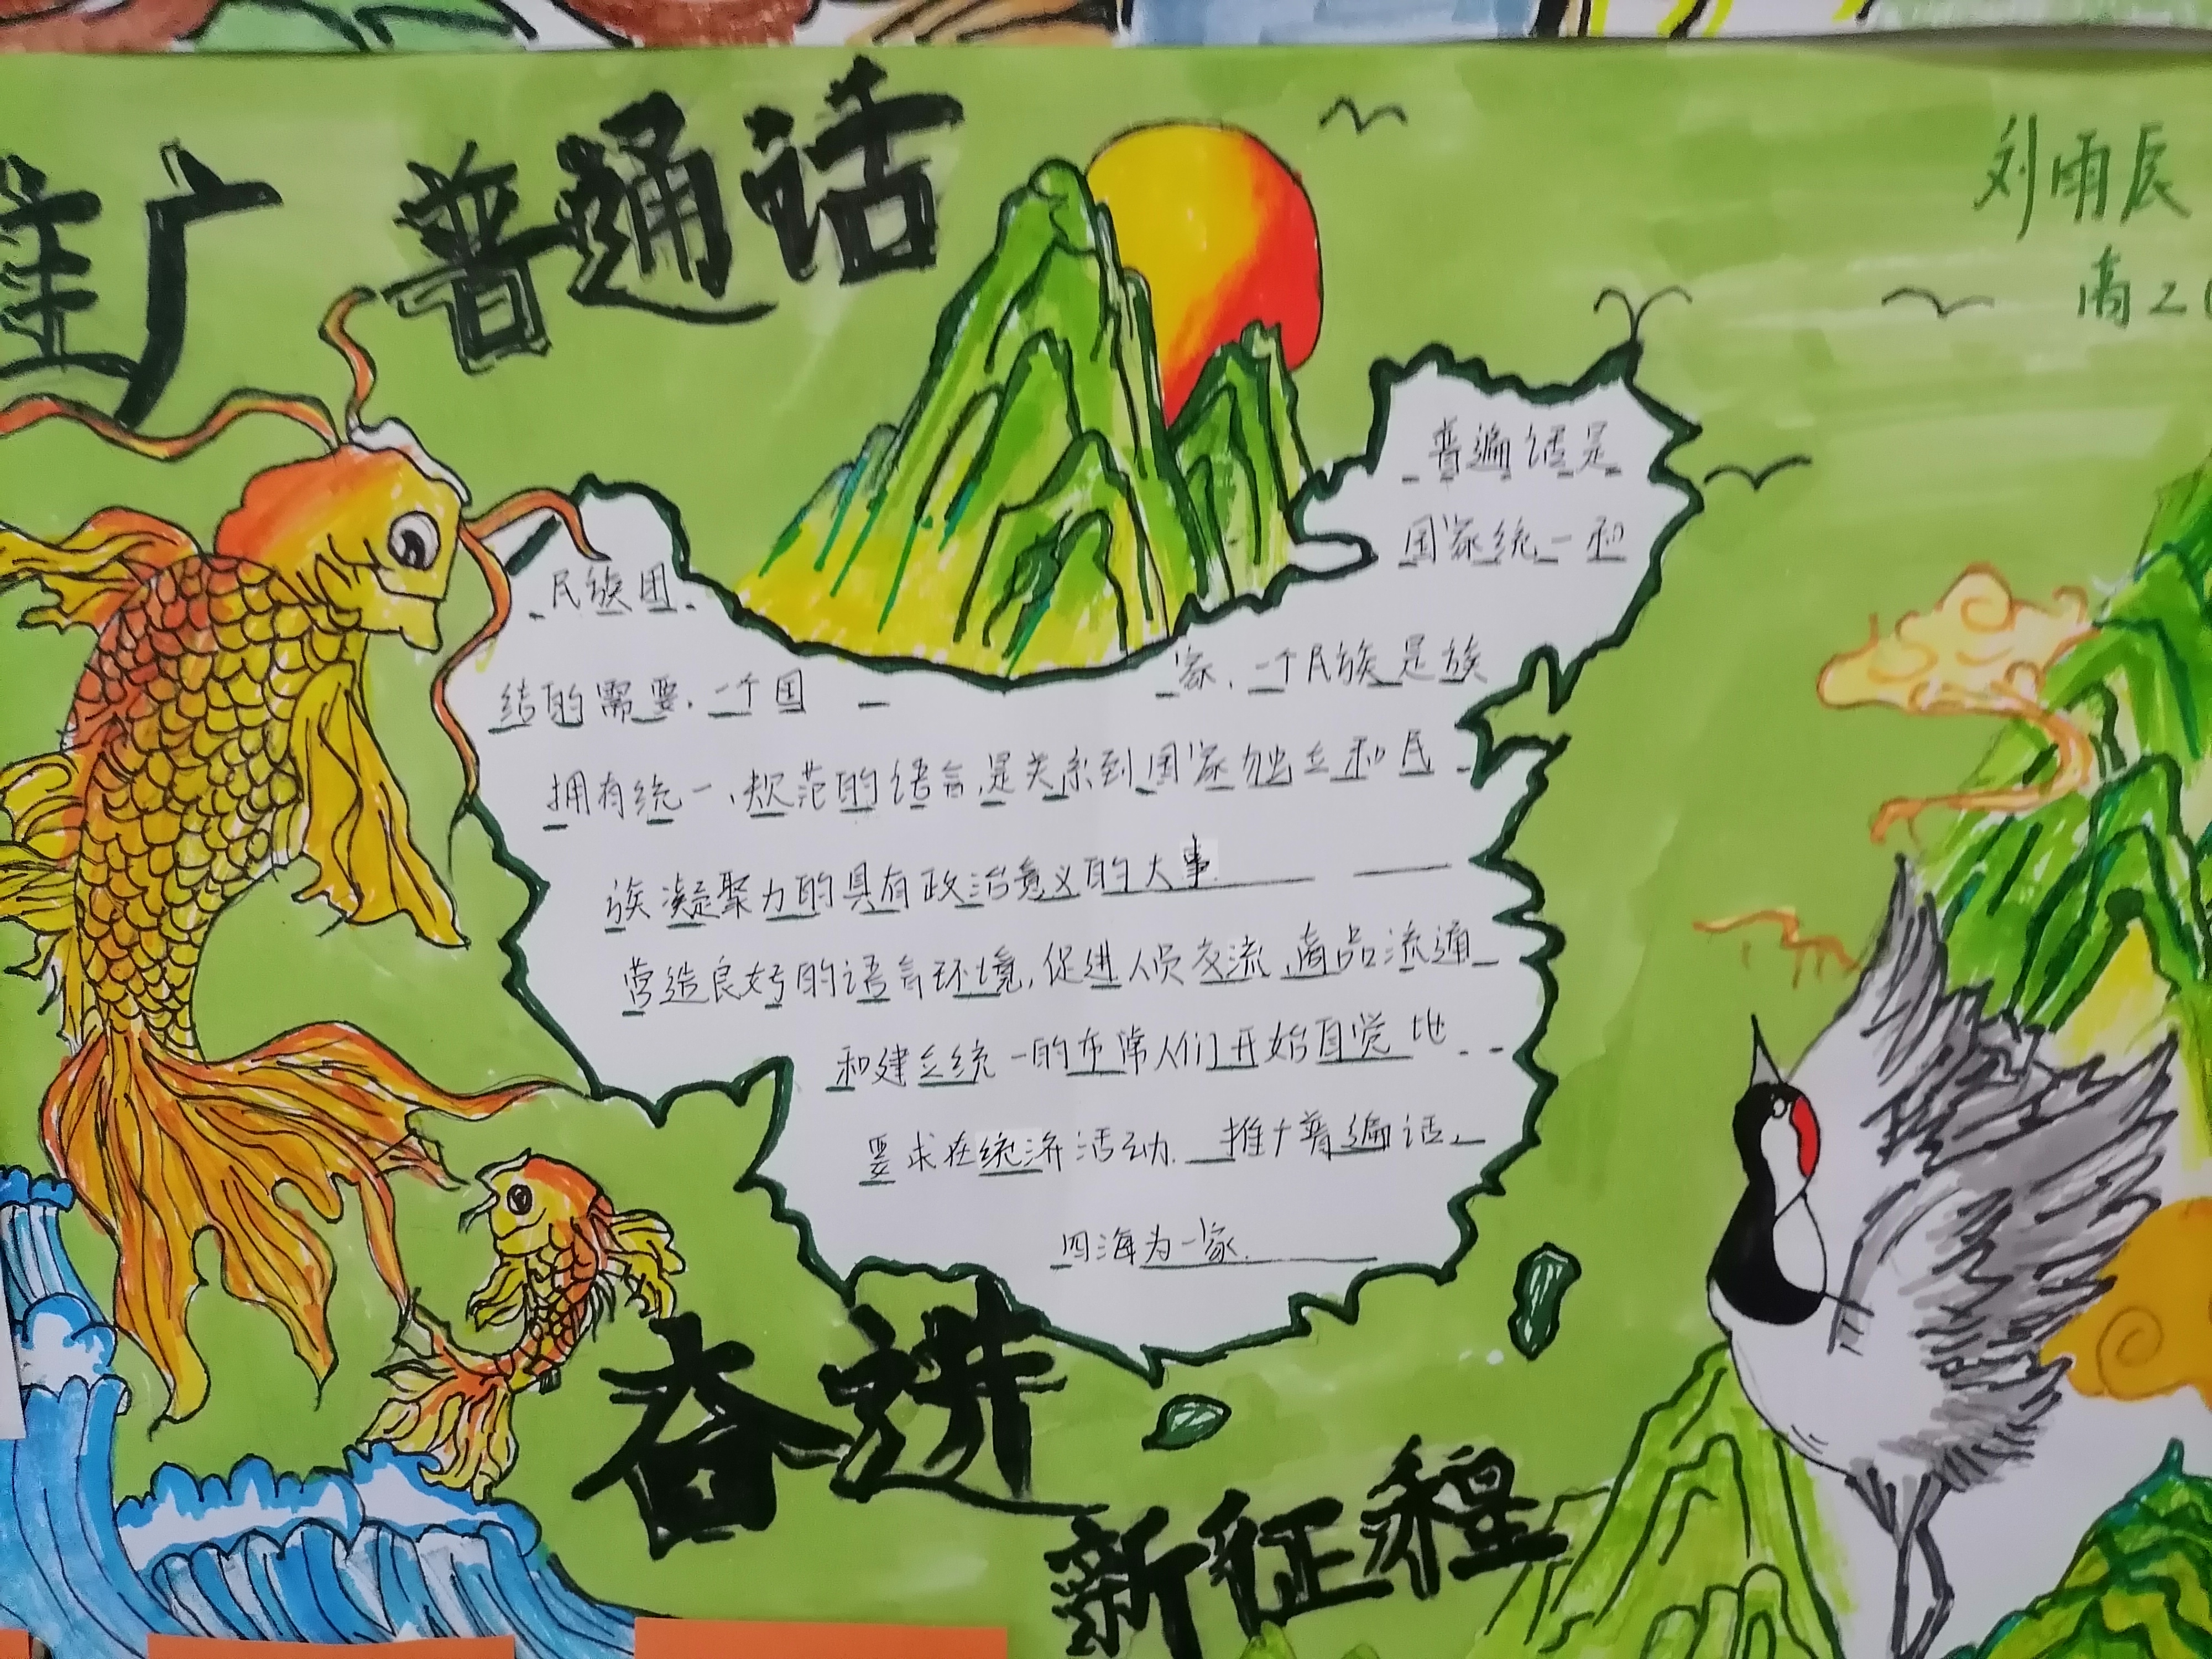 推广普通话
刘雨辰
商2
普遍话是
国家统一和
民族团
结的需要.一个国
家,一个民族是族
拥有统一、规范的语言,是关系到国家独立和民
族凝聚力的具有政治意义的大事.
营造良好的语言环境,促进人员交流,商品流通
和建立统一的市常人们开始自觉地
要求在统济活动.推广普遍话.
四海为一家.
奋进
新征程